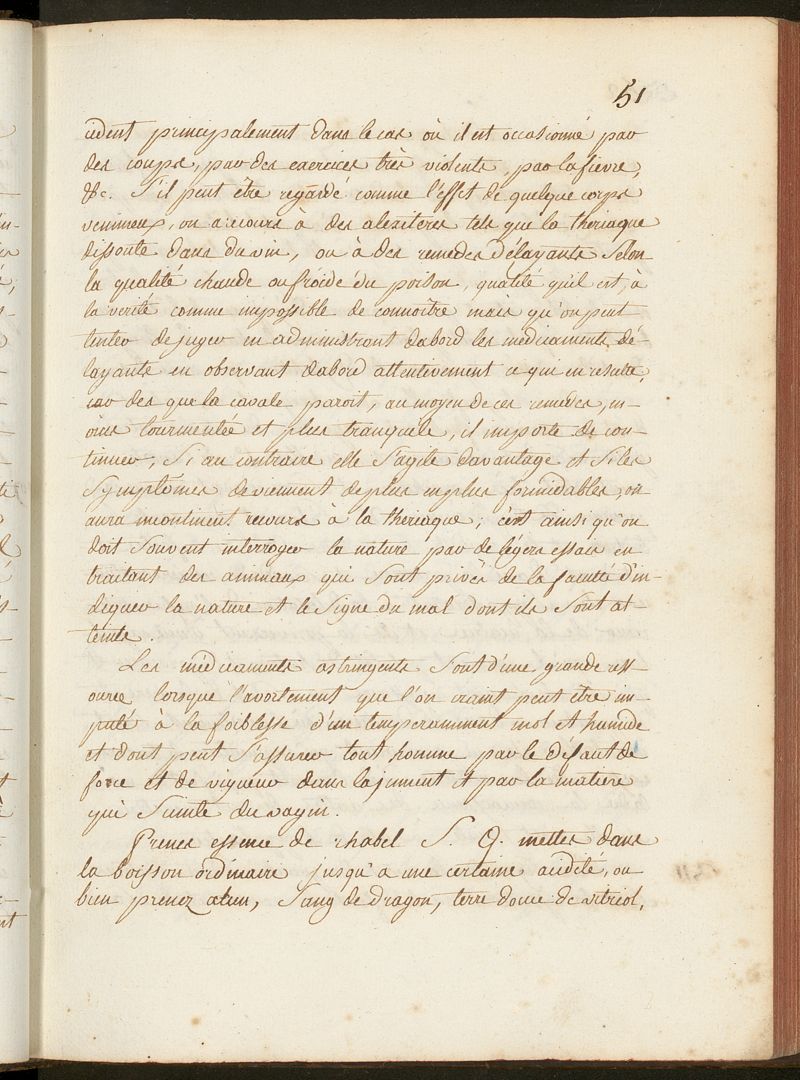 51
cident principalement dans le cas où il est occasionné par
des coups, par des exercices très violents, par la fievre,
&c. S'il peut être regardé comme l'effet de quelque corps
venimeux, on a recours à des alexiteres tels que la theriaque
dissoute dans du vin, ou à des remedes délayants selon
la qualité chaude ou froide du poison, qualité qu'il est, à
la verité comme impossible de connoître mais qu'on peut
tenter de juger en administrant dabord les medicaments dé-
layants en observant dabord attentivement ce qui en resulte,
car des que la cavale paroit, au moyen de ces remedes, m-
oins tourmentée et plus tranquile, il importe de con-
tinuer, Si au contraire elle s'agite davantage et si les
Symptômes deviennent de plus en plus formidables, on
aura incontinent recours à la theriaque; c'est ainsi qu'on
doit souvent interroger la nature par de légers essais en
traitant des animaux qui sont privés de la faculté d'in-
diquer la nature et le signe du mal dont ils sont at-
teints.
Les médicaments astringents sont d'une grande ress-
ource lorsque l'avortement que l'on craint peut être im-
puté à la foiblesse d'un temperamment mol et humide
et dont peut s'assurer tout homme par le défaut de
force et de vigueur dans la jument et par la matiere
qui suinte du vagin.
Prenez essence de rhabel S. Q. mettes dans
la boisson ordinaire jusqu'a une certaine acidité, ou
bien prenez alun, sang de dragon, terre douce de vitriol,